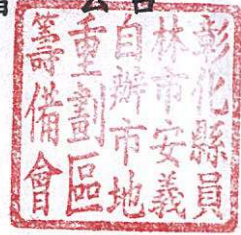 彰化縣員
林市安義
自辦市地
重劃區
籌備會